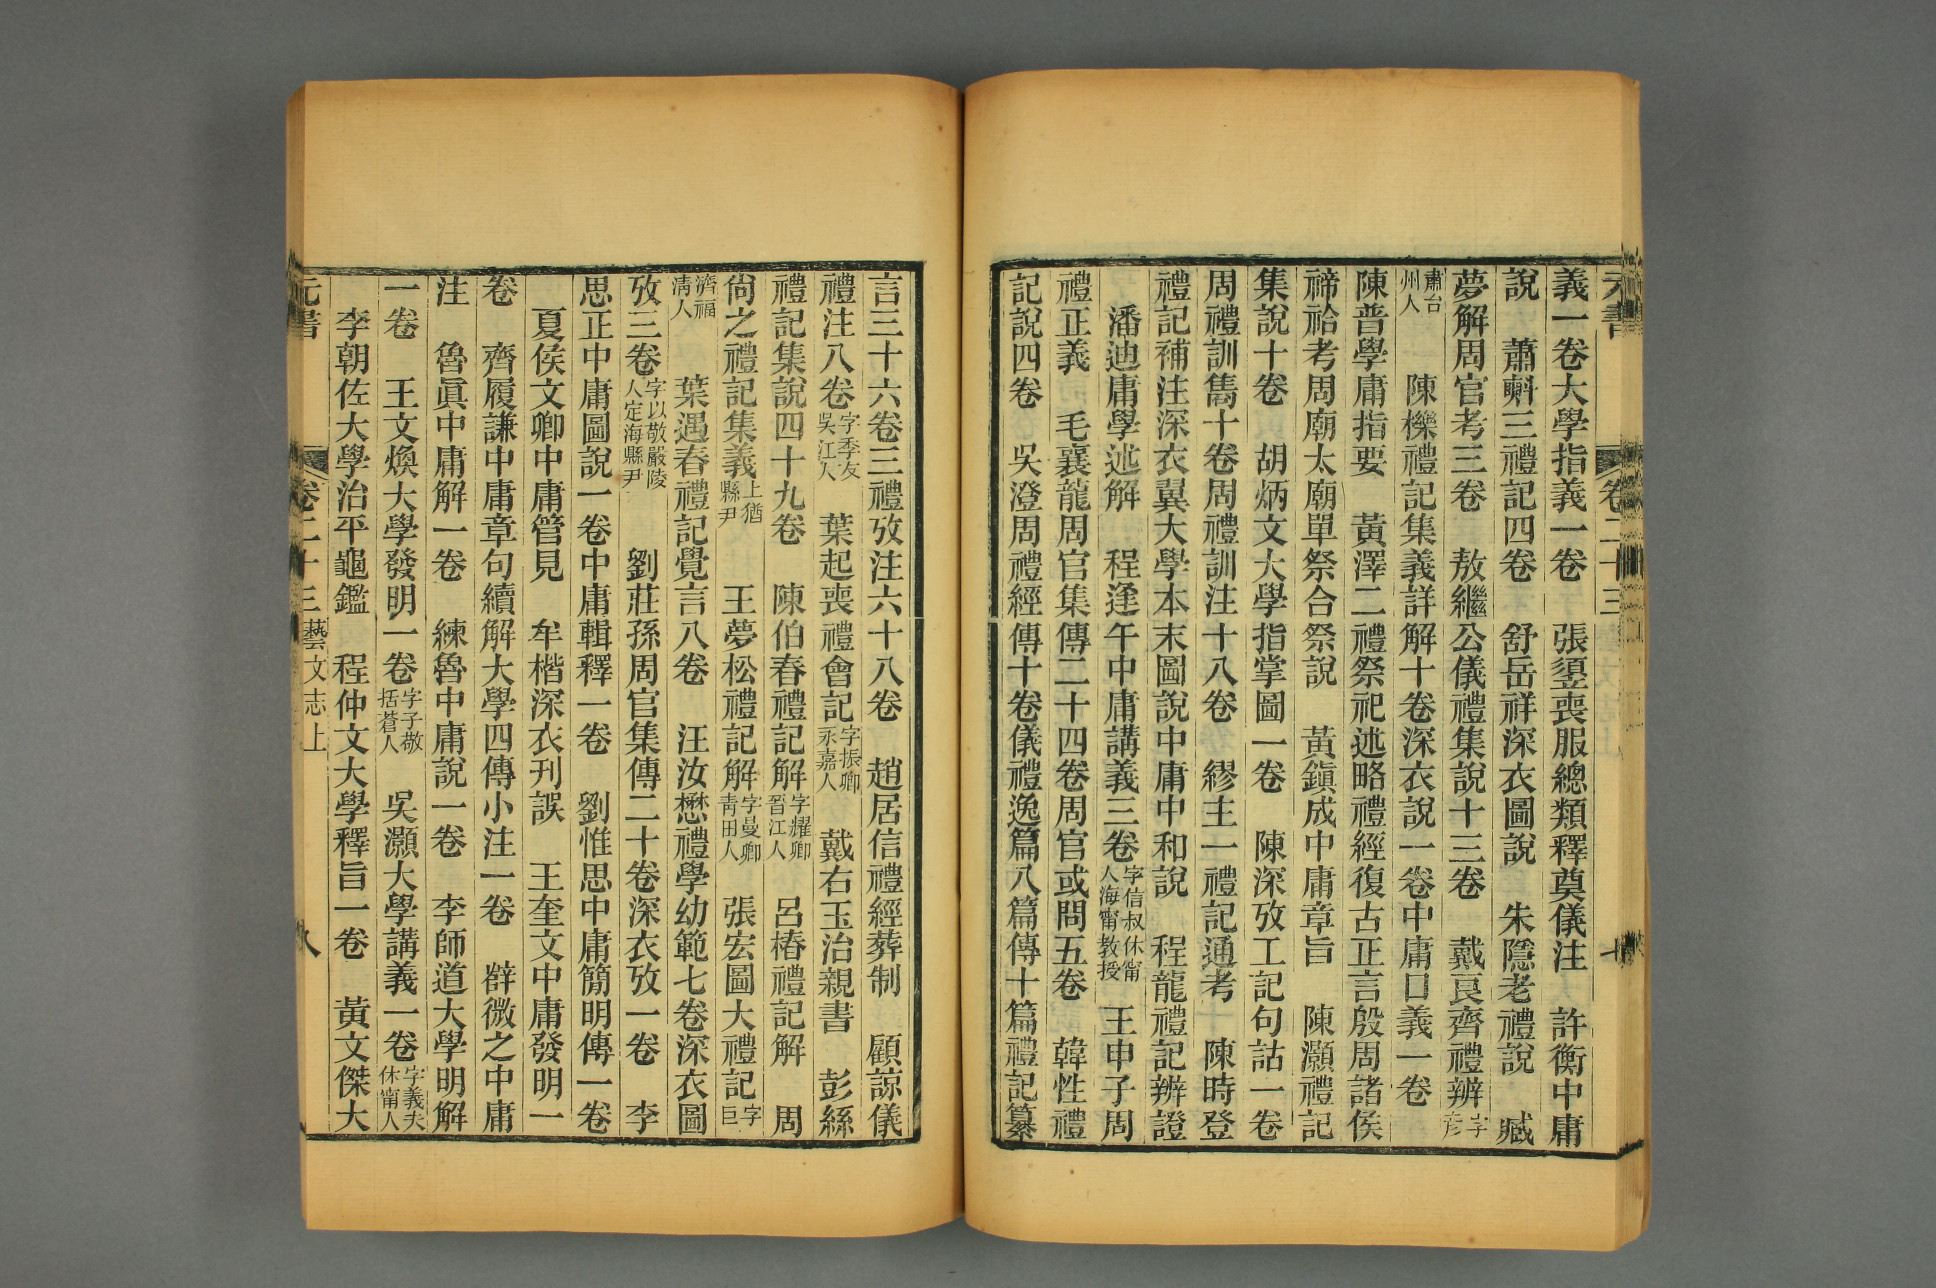 元書 卷二十三 七
義一卷大學指義一卷 張𩓣喪服總類釋奠儀注 許衡中庸
說 蕭𣂏三禮記四卷 舒岳祥深衣圖說 朱隱老禮說 臧
夢解周官考三卷 敖繼公儀禮集說十三卷 戴良齊禮辨字彥
肅台州人 陳櫟禮記集義詳解十卷深衣說一卷中庸口義一卷
陳普學庸指要 黃澤二禮祭祀述略禮經復古正言殷周諸侯
禘祫考周廟太廟單祭合祭說 黃鎭成中庸章旨 陳灝禮記
集說十卷 胡炳文大學指掌圖一卷 陳深攷工記句詁一卷
周禮訓雋十卷周禮訓注十八卷 繆主一禮記通考 陳時登
禮記補注深衣翼大學本末圖說中庸中和說 程龍禮記辨證
潘迪庸學述解 程逢午中庸講義三卷字信叔休甯人海甯教授 王申子周
禮正義 毛襄龍周官集傳二十四卷周官或問五卷 韓性禮
記說四卷 吳澄周禮經傳十卷儀禮逸篇八篇傳十篇禮記纂
言三十六卷三禮攷注六十八卷 趙居信禮經葬制 顧諒儀
禮注八卷字季友吳江人 葉起喪禮會記字振卿永嘉人 戴右玉治親書 彭絲
禮記集說四十九卷 陳伯春禮記解字耀卿晉江人 呂椿禮記解 周
尙之禮記集義上猶縣尹 王夢松禮記解字曼卿靑田人 張宏圖大禮記字巨
濟福淸人 葉遇春禮記覺言八卷 汪汝懋禮學幼範七卷深衣圖
攷三卷字以敬嚴陵人定海縣尹 劉莊孫周官集傳二十卷深衣攷一卷 李
思正中庸圖說一卷中庸輯釋一卷 劉惟思中庸簡明傳一卷
夏侯文卿中庸管見 牟楷深衣刊誤 王奎文中庸發明一
卷 齊履謙中庸章句續解大學四傳小注一卷 辥微之中庸
注 魯眞中庸解一卷 練魯中庸說一卷 李師道大學明解
一卷 王文煥大學發明一卷字子敬括蒼人 吳灝大學講義一卷字義夫休甯人
李朝佐大學治平龜鑑 程仲文大學釋旨一卷 黃文傑大
元書 卷二十三 藝文志上 八